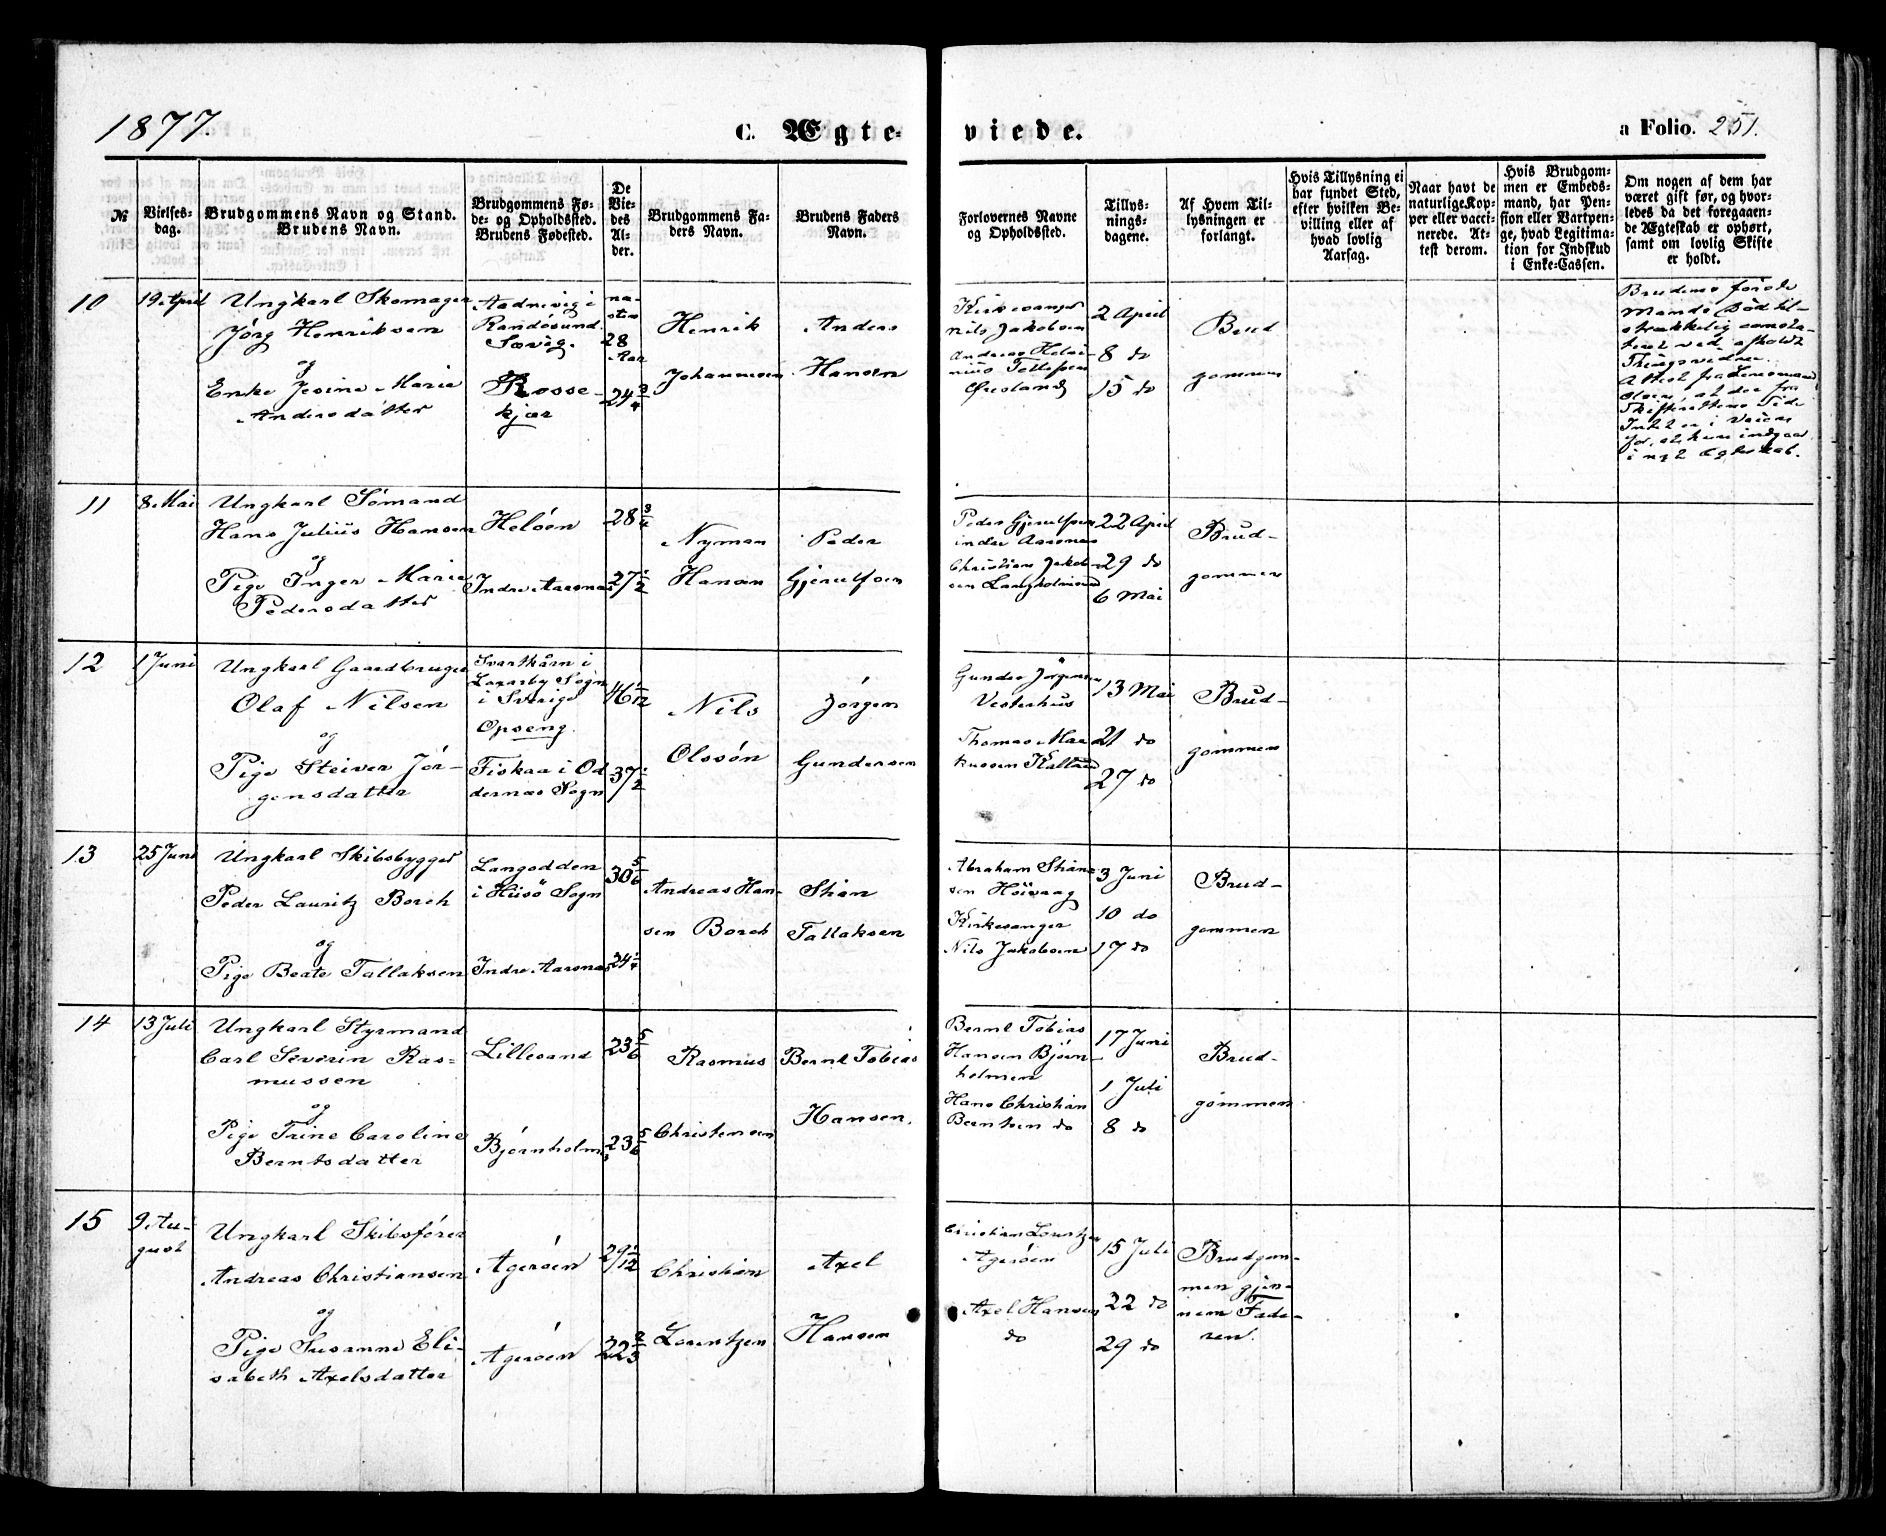 1877
C. Ægte-
viede.
a Folio. 251.
№
Vielses-
dag.
Brudgommens Navn og Stand.
Brudens Navn.
Brudgommens Fø-
de- og Opholdsted.
Brudens Fødested.
De
Vie-
des
Al-
der.
Brudgommens Fa-
ders Navn.
Brudens Faders
Navn.
Forlovernes Navne
og Opholdsted.
Tillys-
nings-
dagene.
Af Hvem Til-
lysningen er
forlangt.
Hvis Tillysning ei
har fundet Sted,
efter hvilken Be-
villing eller af
hvad lovlig
Aarsag.
Naar havt de
naturlige Kop-
per eller vacci-
nerede. At-
test derom.
Hvis Brudgom-
men er Embeds-
mand, har Pen-
sion eller Vartpen-
ge, hvad Legitima-
tion for Indskud
i Enke-Cassen.
Om nogen af dem har
været gift før, og hvor-
ledes da det foregaaen-
de Ægteskab er ophørt,
samt om lovlig Skifte
er holdt.
10
19 April
Ungkarl Skomager
Jörg Henriksen
og
Enke Jesine Marie
Andersdatter
Aadnevig i
Randösund
Sævig.
Rosse-
kjær
næ-
sten
28
Aar
24 3/4
Henrik
Johannesen
Anders
Hansen
Kirkesanger
Nils Jakobsen
Andreas Helmi-
nius Tellefsen
2 April
8 do
15 do
Brud
gommen
Brudens første
Mands Död til-
strækkelig consta-
teret ved afholdt
Thingsvidne.
Attest fra Lensmand
Olsen, at der fra
Skifterettens Side
Intet er i Veien
for, at hun indgaar
i nyt Ægteskab.
11
8 Mai
Ungkarl Sömand
Hans Julius Hansen
og
Pige Inger Marie
Pedersdatter
Helöen
Indre Aarsnæs
28 3/4
27 1/2
Nyman
Hansen
Peder
Gjerulfsen
Peder Gjerulfsen
indre Aarsnes
Christian Jakob-
sen Langholmsund
22 April
29 do
6 Mai
Brud-
gommen
12
1 Juni
Ungkarl Gaardbruger
Olaf Nilsen
og
Pige Steiver Jör-
gensdatter
Svartkärn i
Laxarby Sogn
i Sverige
Opseng.
Fiskaa i Od
dernæs Sogn
46 1/12
37 1/2
Nils
Olssön
Jörgen
Gundersen
Gunder Jörgensen
Vesterhus
Thomas Mar
kussen Kaltrud
13 Mai
21 do
27 do
Brud-
gommen
13
25 Juni
Ungkarl Skibsbygger
Peder Lauritz Borch
og
Pige Beate Tallaksen
Langodden
i Hisö Sogn
Indre Aarsnæs
30 5/6
24 1/4
Andreas Han-
sen Borch
Stian
Tallaksen
Abraham Stian
sen Höivaag
Kirkesanger
Nils Jakobsen
3 Juni
10 do
17 do
Brud-
gommen
14
13 Juli
Ungkarl Styrmand
Carl Severin Ras-
mussen
og
Pige Trine Caroline
Berntsdatter
Lillesand
Björnholm
23 5/6
23 5/6
Rasmus
Christensen
Bernt Tobias
Hansen.
Bernt Tobias
Hansen Björn-
holmen
Hans Christian
Berntsen do
17 Juni
1 Juli
8 do
Brud-
gommen
15
9 Au-
gust
Ungkarl Skibsförer
Andreas Christiansen
og
Pige Susanne Eli-
sabeth Axelsdatter
Ageröen
Ageröen
29 1/12
22 2/3
Christian
Lorentzen
Axel
Hansen
Christian Lorentzen
Ageröen
Axel Hansen
do
15 Juli
22 do
29 do
Brudgom-
men gjen-
nem Fade-
ren.